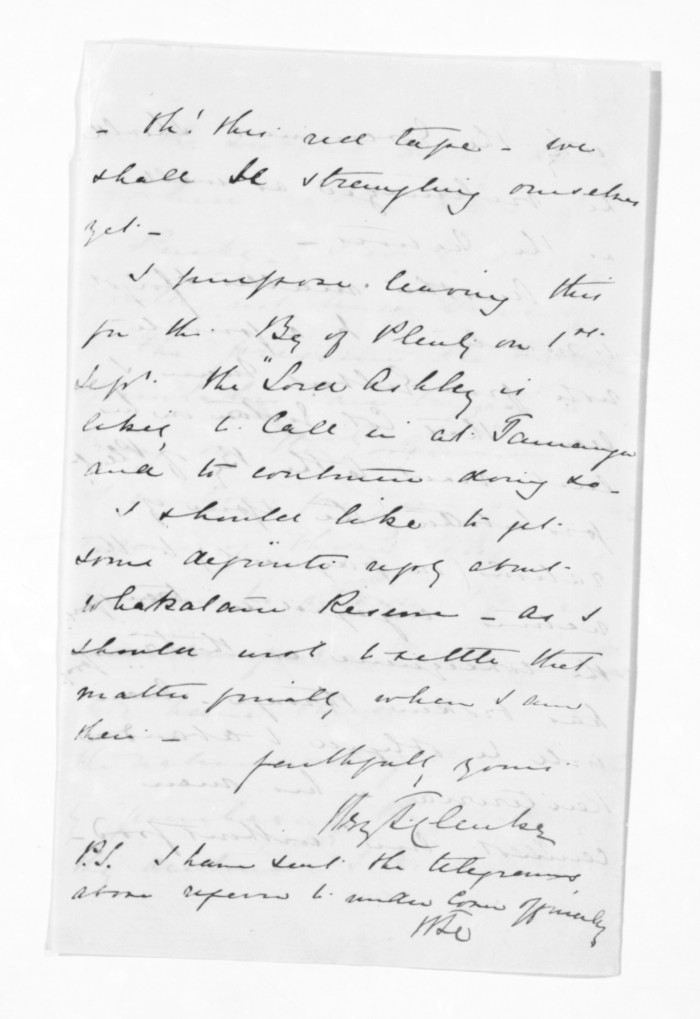 - tho' this red tape - we
shall be strangling ourselves
yet -
I purpose leaving this
for the Bay of Plenty on 1st
Sept. the "Lord Ashley is
likely to call in at Tauranga
and to continue doing so -
I should like to get
some definite reply about
Whakatane Reserve - as I
should wish to settle that
matter finally when I am
there -
faithfully yours
Clarke
P.S. I have sent the telegrams
above referred to under cover officially